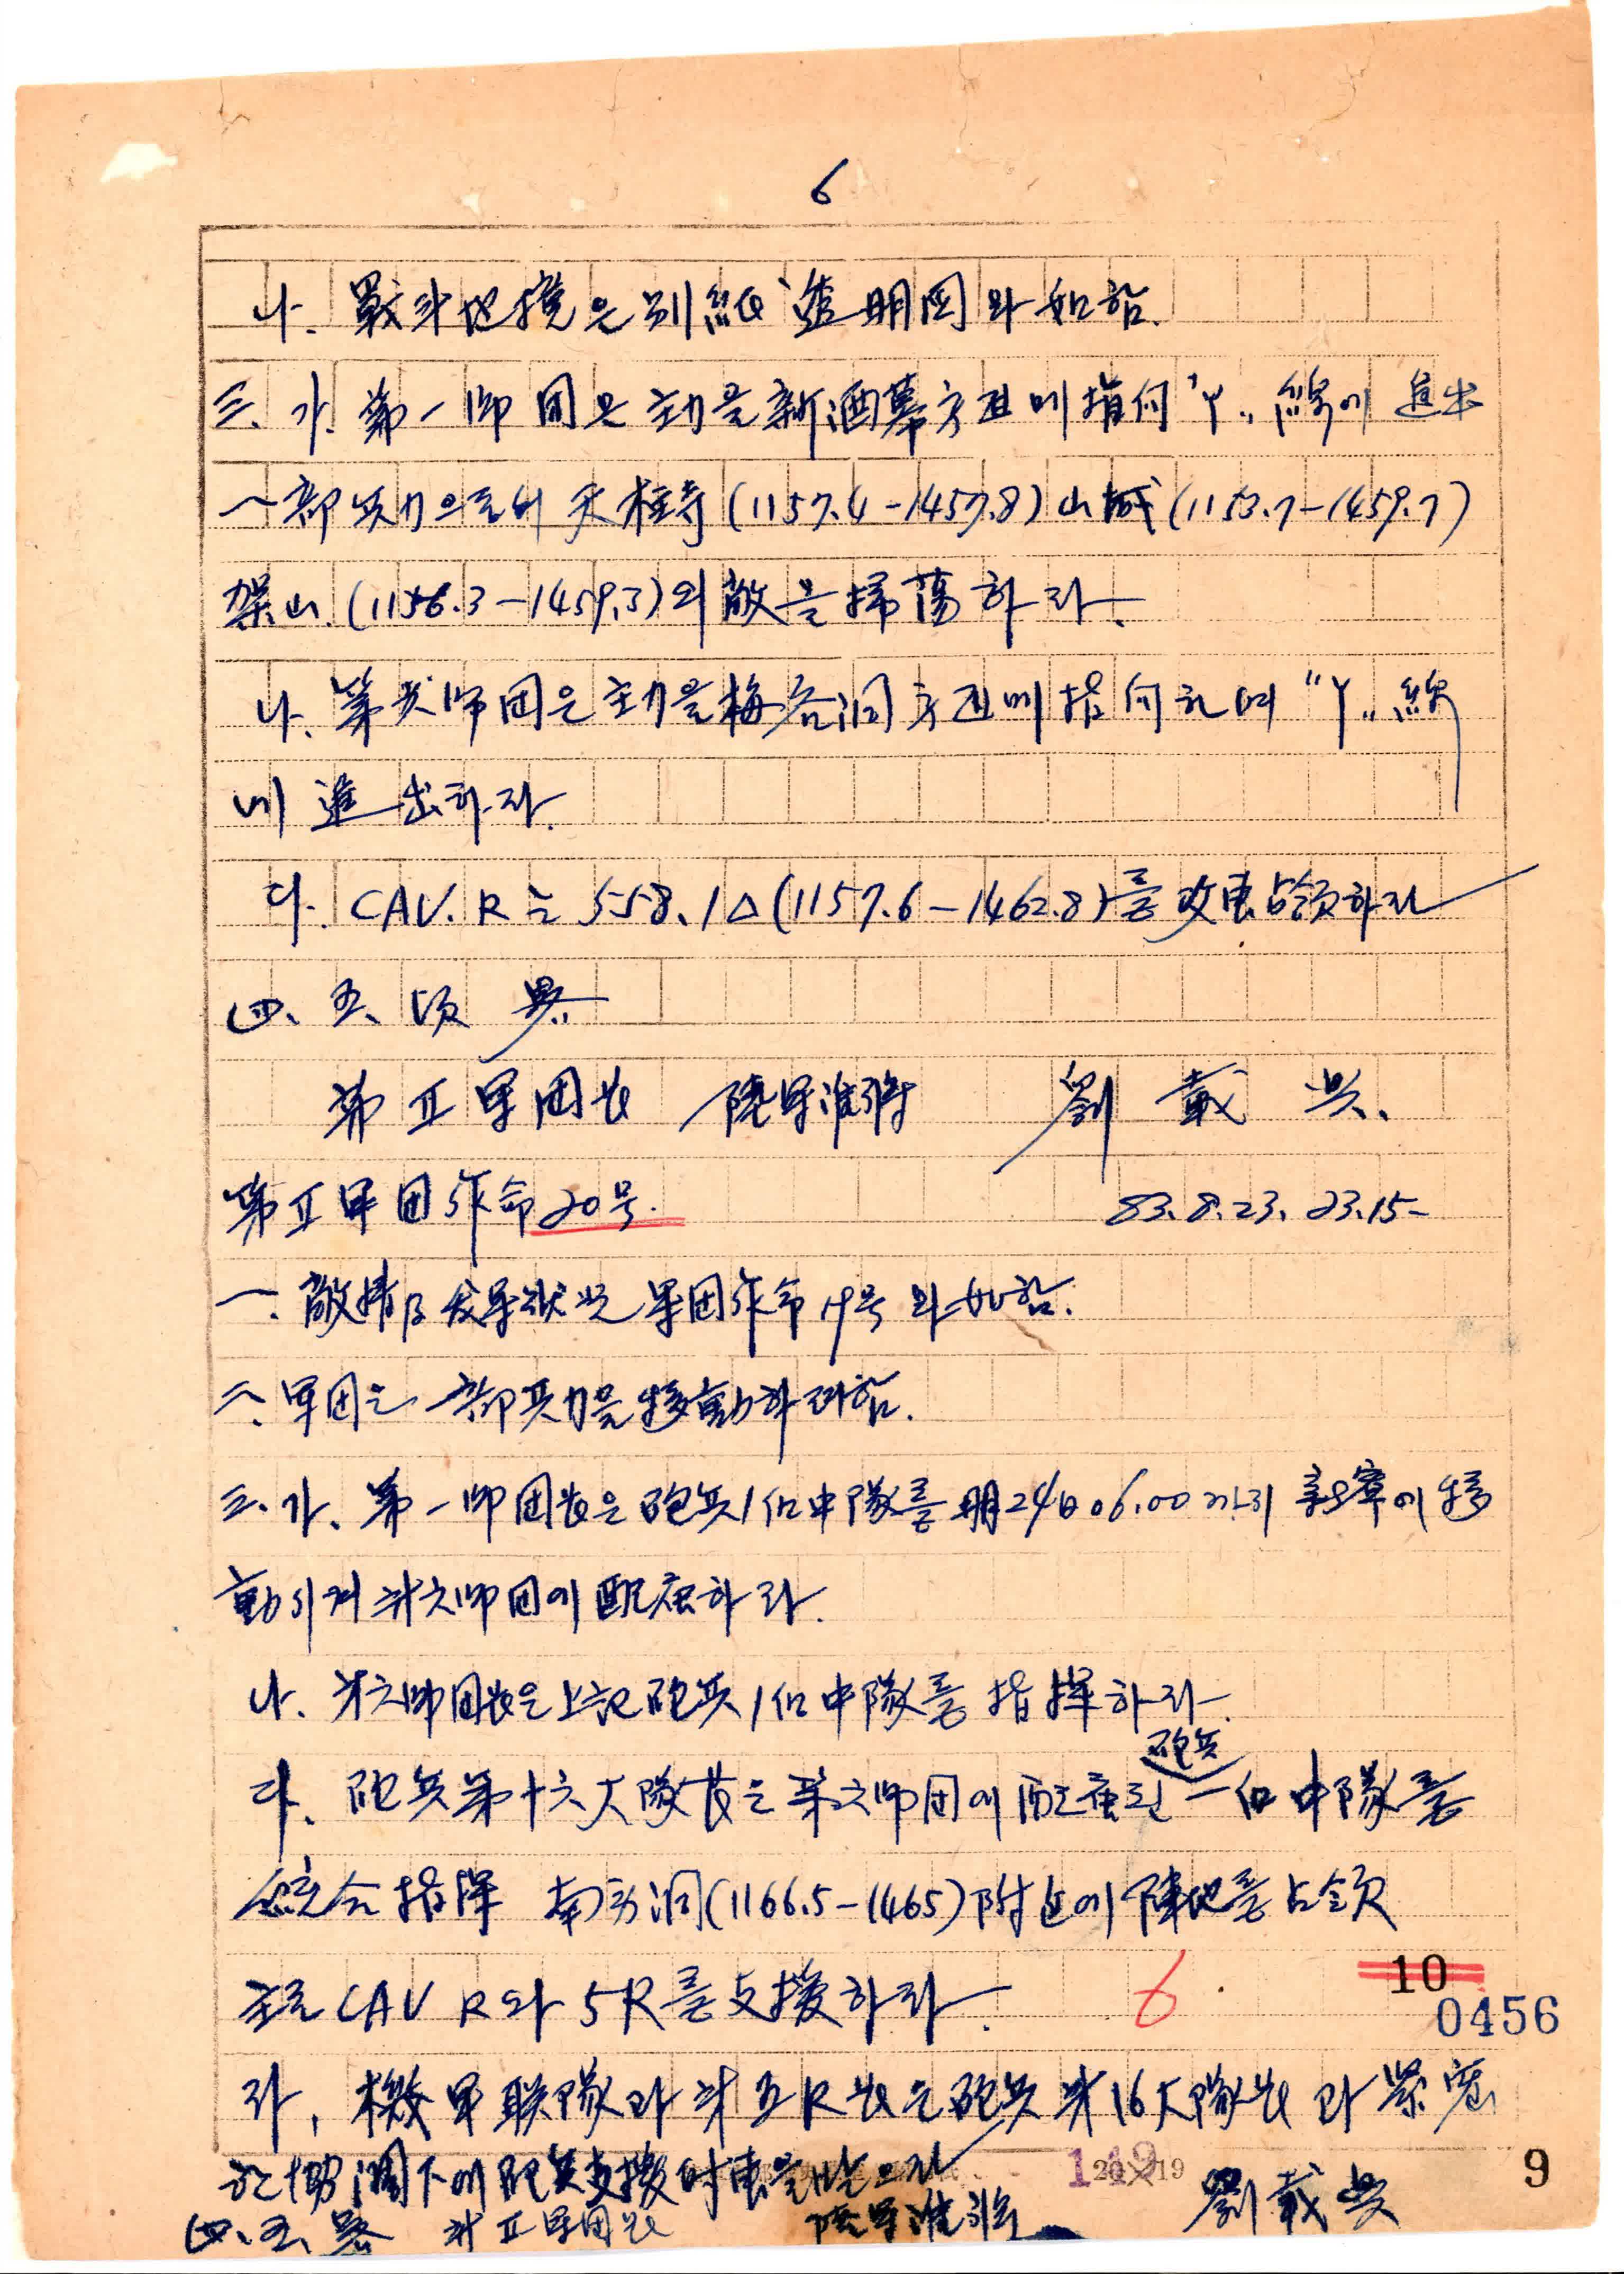 6
나. 戰斗地境은 別紙 透明図와 如함.
三. 가. 第一師団은 主力을 新酒幕方面에 指向 "Y" 線에 進出
一部兵力으로서 天柱寺(1157.4-1457.8) 山城(1153.7-1459.7)
架山(1156.3-1459.3)의 敵을 掃蕩하라.
나. 第六師団은 主力을 梅谷洞方面에 指向하며 "Y" 線
에 進出하라.
다. CAV.R은 558.1△(1157.6-1462.8)를 攻擊占領하라
四、五、項 畧
第Ⅱ軍団長 陸軍准將 劉載興
第Ⅱ軍団作命20号. 83.8.23. 23.15-
一. 敵情及友軍狀況 軍団作命19号와 如함.
二. 軍団은 一部兵力을 移動하려함.
三. 가. 第一師団長은 砲兵1個中隊를 明24日06.00까지 新寧에 移
動시켜 第六師団에 配屬하라.
나. 第六師団長은 上記砲兵1個中隊를 指揮하라.
다. 砲兵第十六大隊長은 第六師団에 配屬된 砲兵一個中隊를
統合指揮 南方洞(1166.5-1465)附近에 陣地를 占領
主로 CAV R와 5R를 支援하라.
6
10
0456
라. 機甲联隊와 第五R長은 砲兵第16大隊長과 緊密
한 協調下에 砲兵支援
四、五、畧 第Ⅱ軍団長 陸軍准將 劉載興
9